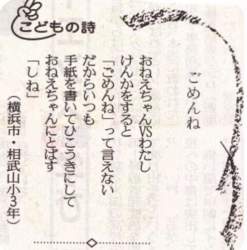 こどもの詩
ごめんね
おねえちゃんVSわたし
けんかをすると
「ごめんね」って言えない
だからいつも
手紙を書いてひこうきにして
おねえちゃんにとばす
「しね」
(横浜市・相武山小3年)